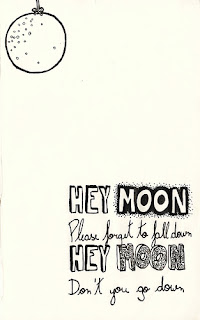 HEY MOON
Please forget to fall down
HEY MOON
Don't you go down